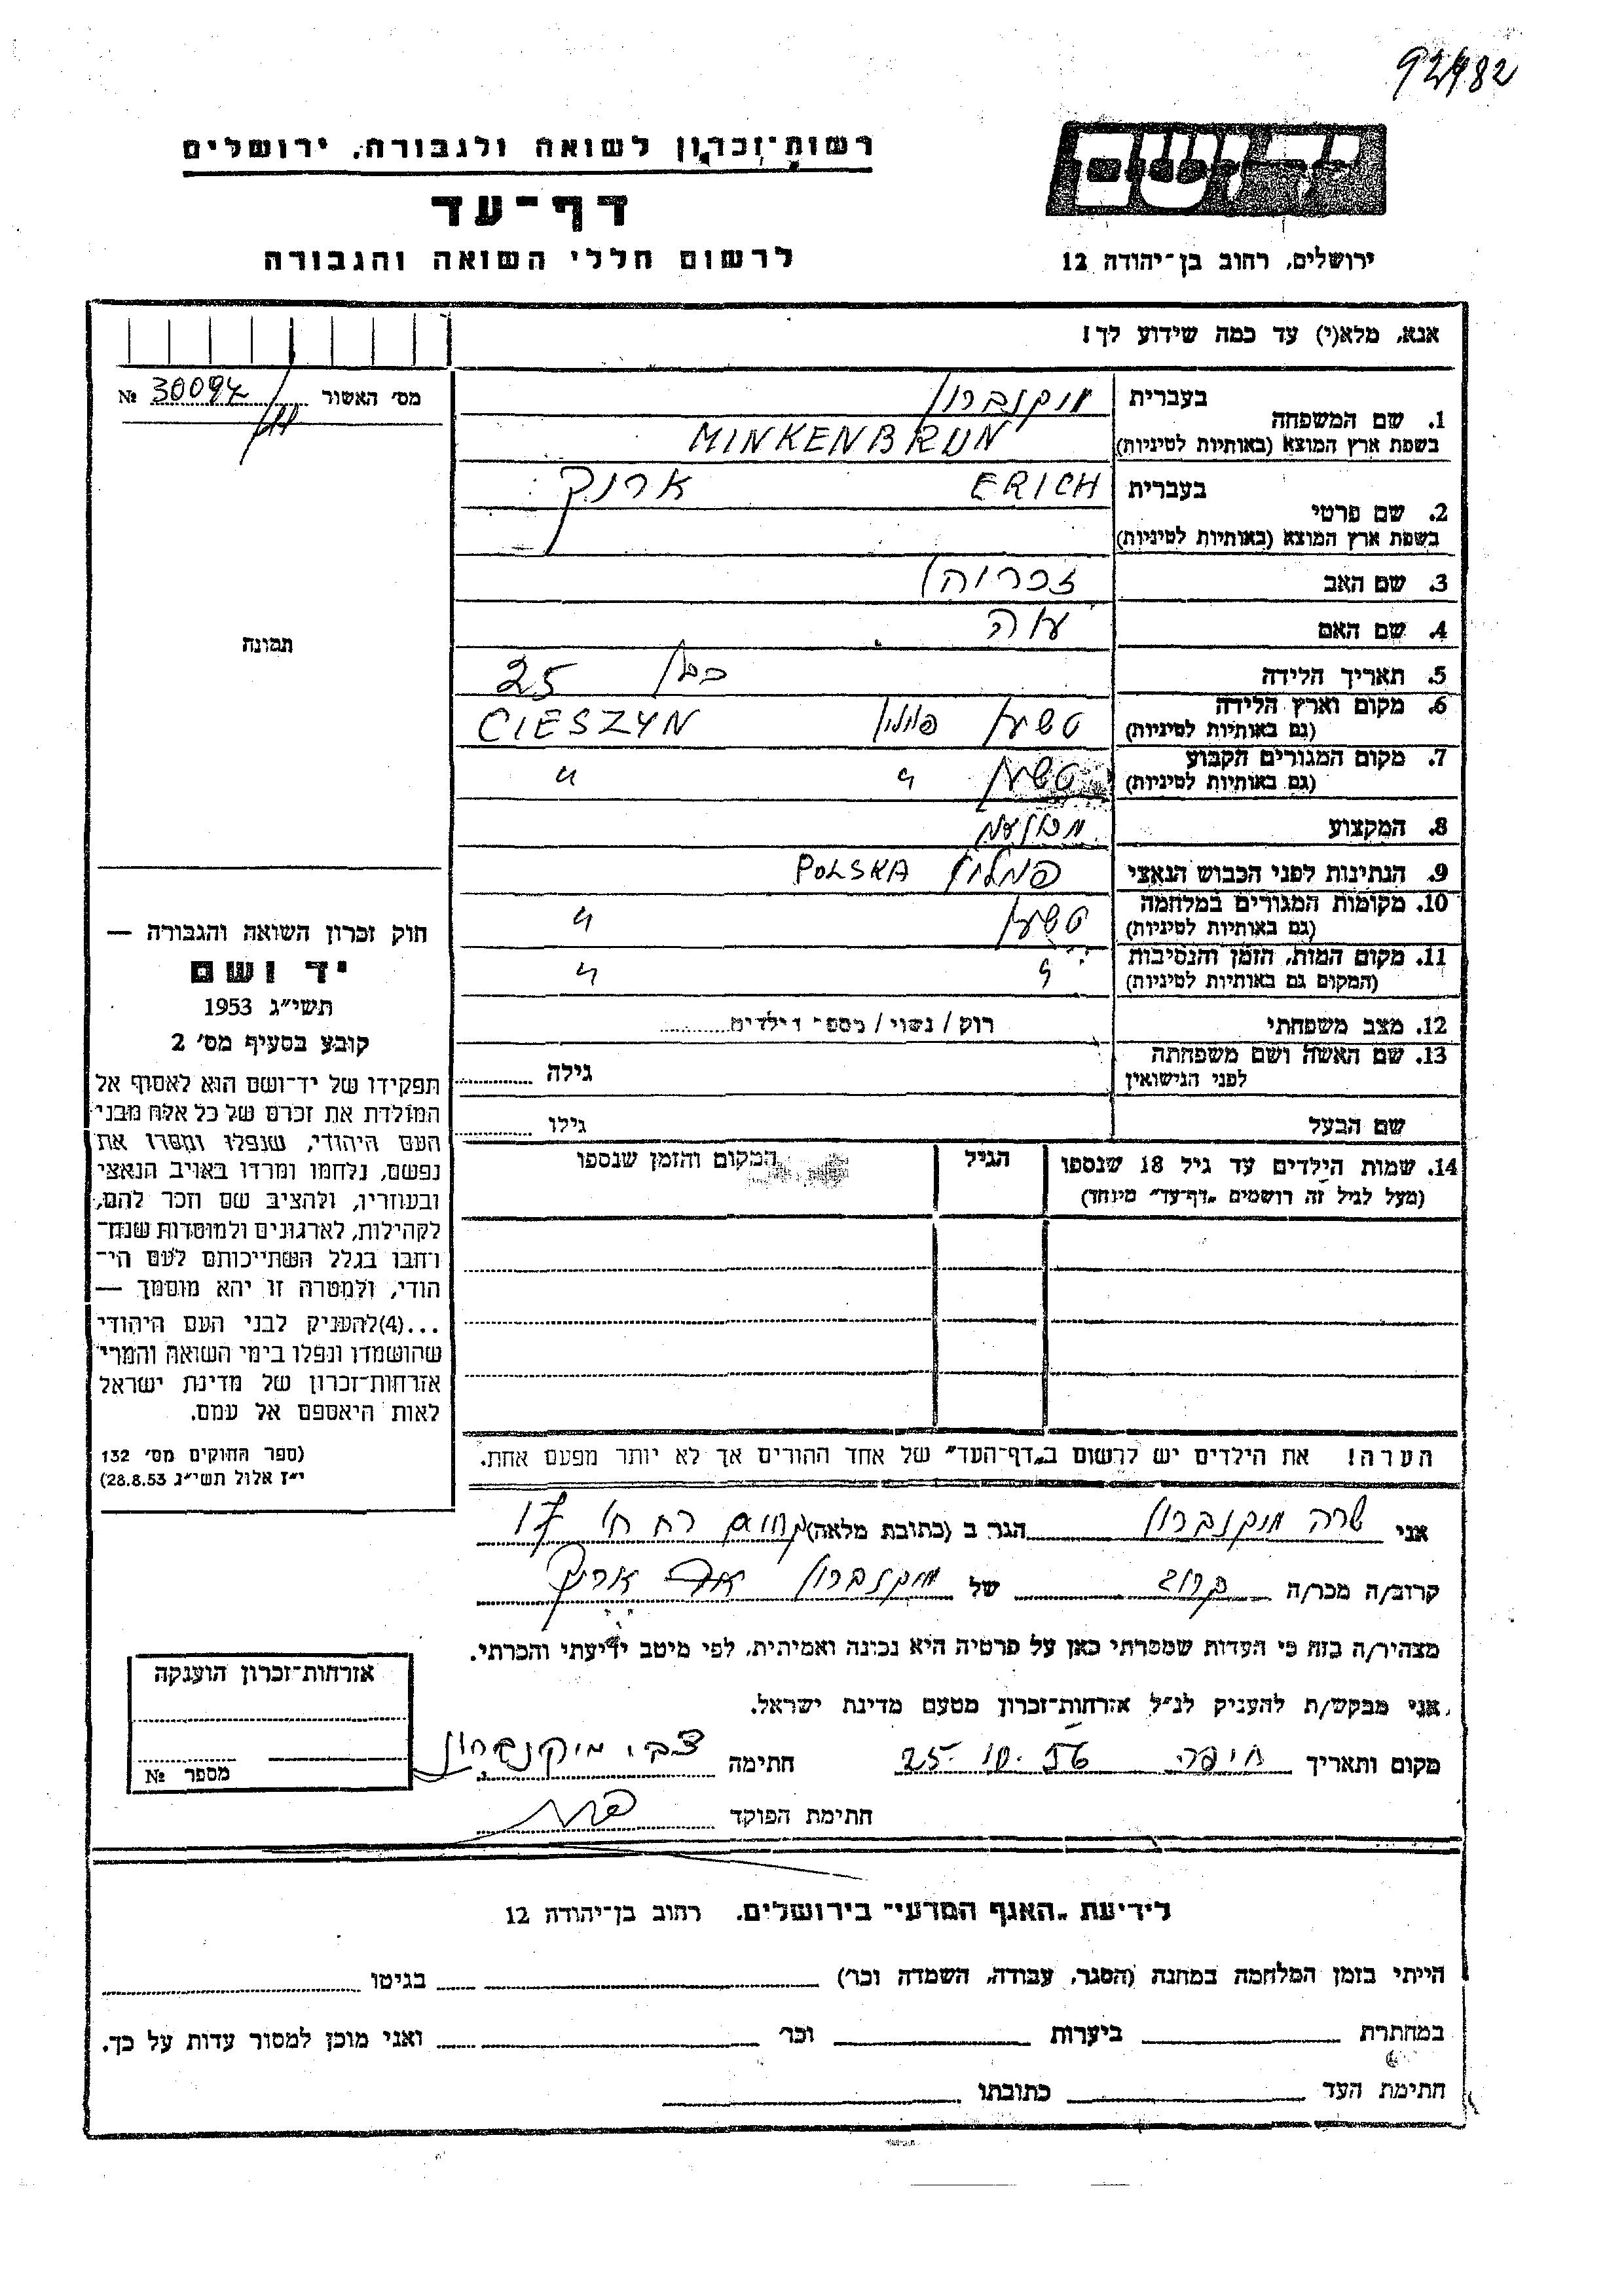 92482
יד ושם
רשות־זכרון לשואה ולגבורה, ירושלים
דף־עד
לרשום חללי השואה והגבורה
ירושלים, רחוב בן־יהודה 12
אנא, מלא(י) עד כמה שידוע לך!
מס' האשור № 30094
תמונה
1. שם המשפחה בעברית מינקנברון
בשפת ארץ המוצא (באותיות לטיניות) MINKENBRUN
2. שם פרטי בעברית ERICH
בשפת ארץ המוצא (באותיות לטיניות)
3. שם האב
4. שם האם
5. תאריך הלידה בן 25
6. מקום וארץ הלידה (גם באותיות לטיניות) טשען פולין CIESZYN
7. מקום המגורים הקבוע (גם באותיות לטיניות) טשען " "
8. המקצוע
9. הנתינות לפני הכבוש הנאצי POLSKA
10. מקומות המגורים במלחמה (גם באותיות לטיניות) טשען "
11. מקום המות, הזמן והנסיבות (המקום גם באותיות לטיניות) " "
12. מצב משפחתי רוק / נשוי / מספר הילדים
13. שם האשה ושם משפחתה לפני הנישואין גילה
שם הבעל גילו
14. שמות הילדים עד גיל 18 שנספו (מעל לגיל זה רושמים "דף־עד" מיוחד) הגיל המקום והזמן שנספו
הערה! את הילדים יש לרשום ב"דף־העד" של אחד ההורים אך לא יותר מפעם אחת.
חוק זכרון השואה והגבורה —
יד ושם
תשי"ג 1953
קובע בסעיף מס' 2
תפקידו של יד־ושם הוא לאסוף אל
המולדת את זכרם של כל אלה מבני
העם היהודי, שנפלו ומסרו את
נפשם, נלחמו ומרדו באויב הנאצי
ובעוזריו, ולהציב שם וזכר להם,
לקהילות, לארגונים ולמוסדות שנח־
רבו בגלל השתייכותם לעם הי־
הודי, ולמטרה זו יהא מוסמך —
...(4)להעניק לבני העם היהודי
שהושמדו ונפלו בימי השואה והמרי
אזרחות־זכרון של מדינת ישראל
לאות היאספם אל עמם.
(ספר החוקים מס' 132
י"ז אלול תשי"ג 28.8.53)
אני שרה מינקנברון הגר ב (כתובת מלאה) 17
קרוב/ה מכר/ה קרוב של מינקנברון
מצהיר/ה בזה כי העדות שמסרתי כאן על פרטיה היא נכונה ואמיתית, לפי מיטב ידיעתי והכרתי.
אני מבקש/ת להעניק לנ"ל אזרחות־זכרון מטעם מדינת ישראל.
מקום ותאריך חיפה 25.10.56 חתימה צבי מינקנברון
חתימת הפוקד
אזרחות־זכרון הוענקה
מספר №
לידיעת "האגף המדעי" בירושלים, רחוב בן־יהודה 12
הייתי בזמן המלחמה במחנה (הסגר, עבודה, השמדה וכו') בגיטו
במחתרת ביערות וכו' ואני מוכן למסור עדות על כך.
חתימת העד כתובתו